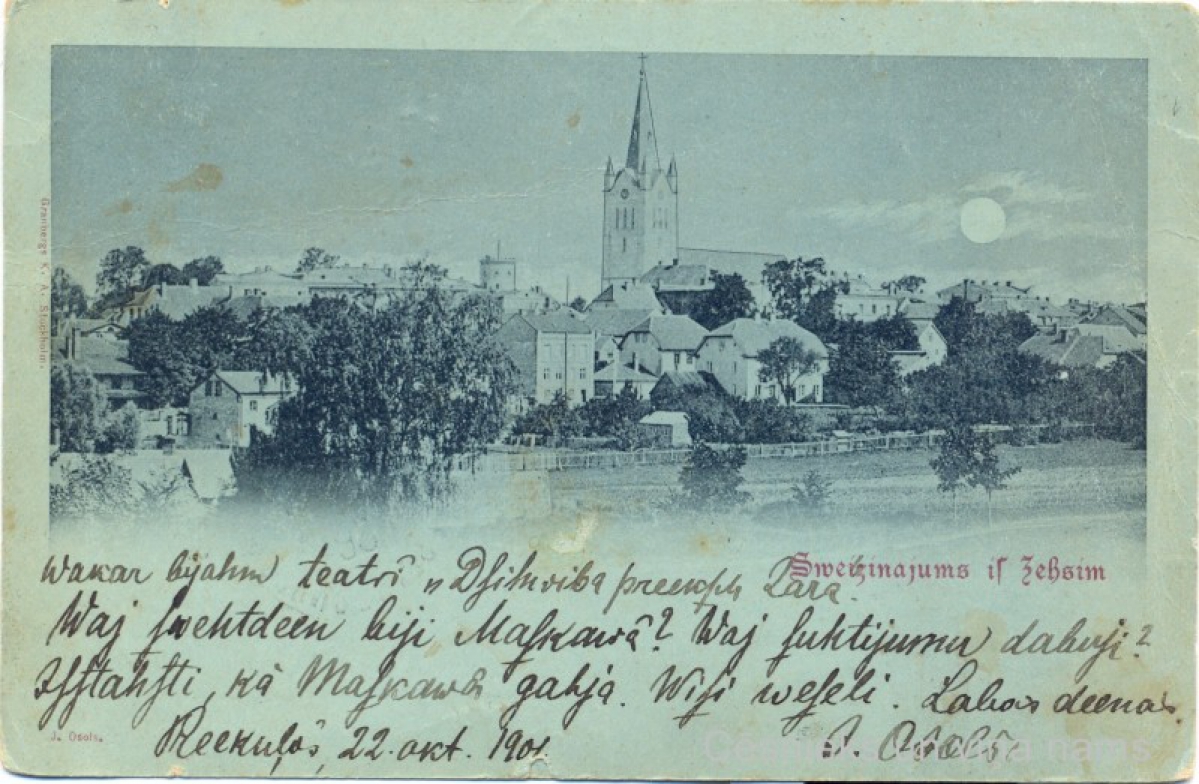 Grannergs K. A. Stockholm.
Sweizinajums if Zehsim
Wakar bijahm teatrī „Dsihwiba preeksch Zara.
Waj swehtdeen biji Maskawâ? Waj suhtijumu dabuji?
Isstahsti, kâ Maskawâ gahja. Wisi weseli. Labas deenas.
J. Osols.
Reekulôs, 22. okt. 1901.
J. Osols
nams